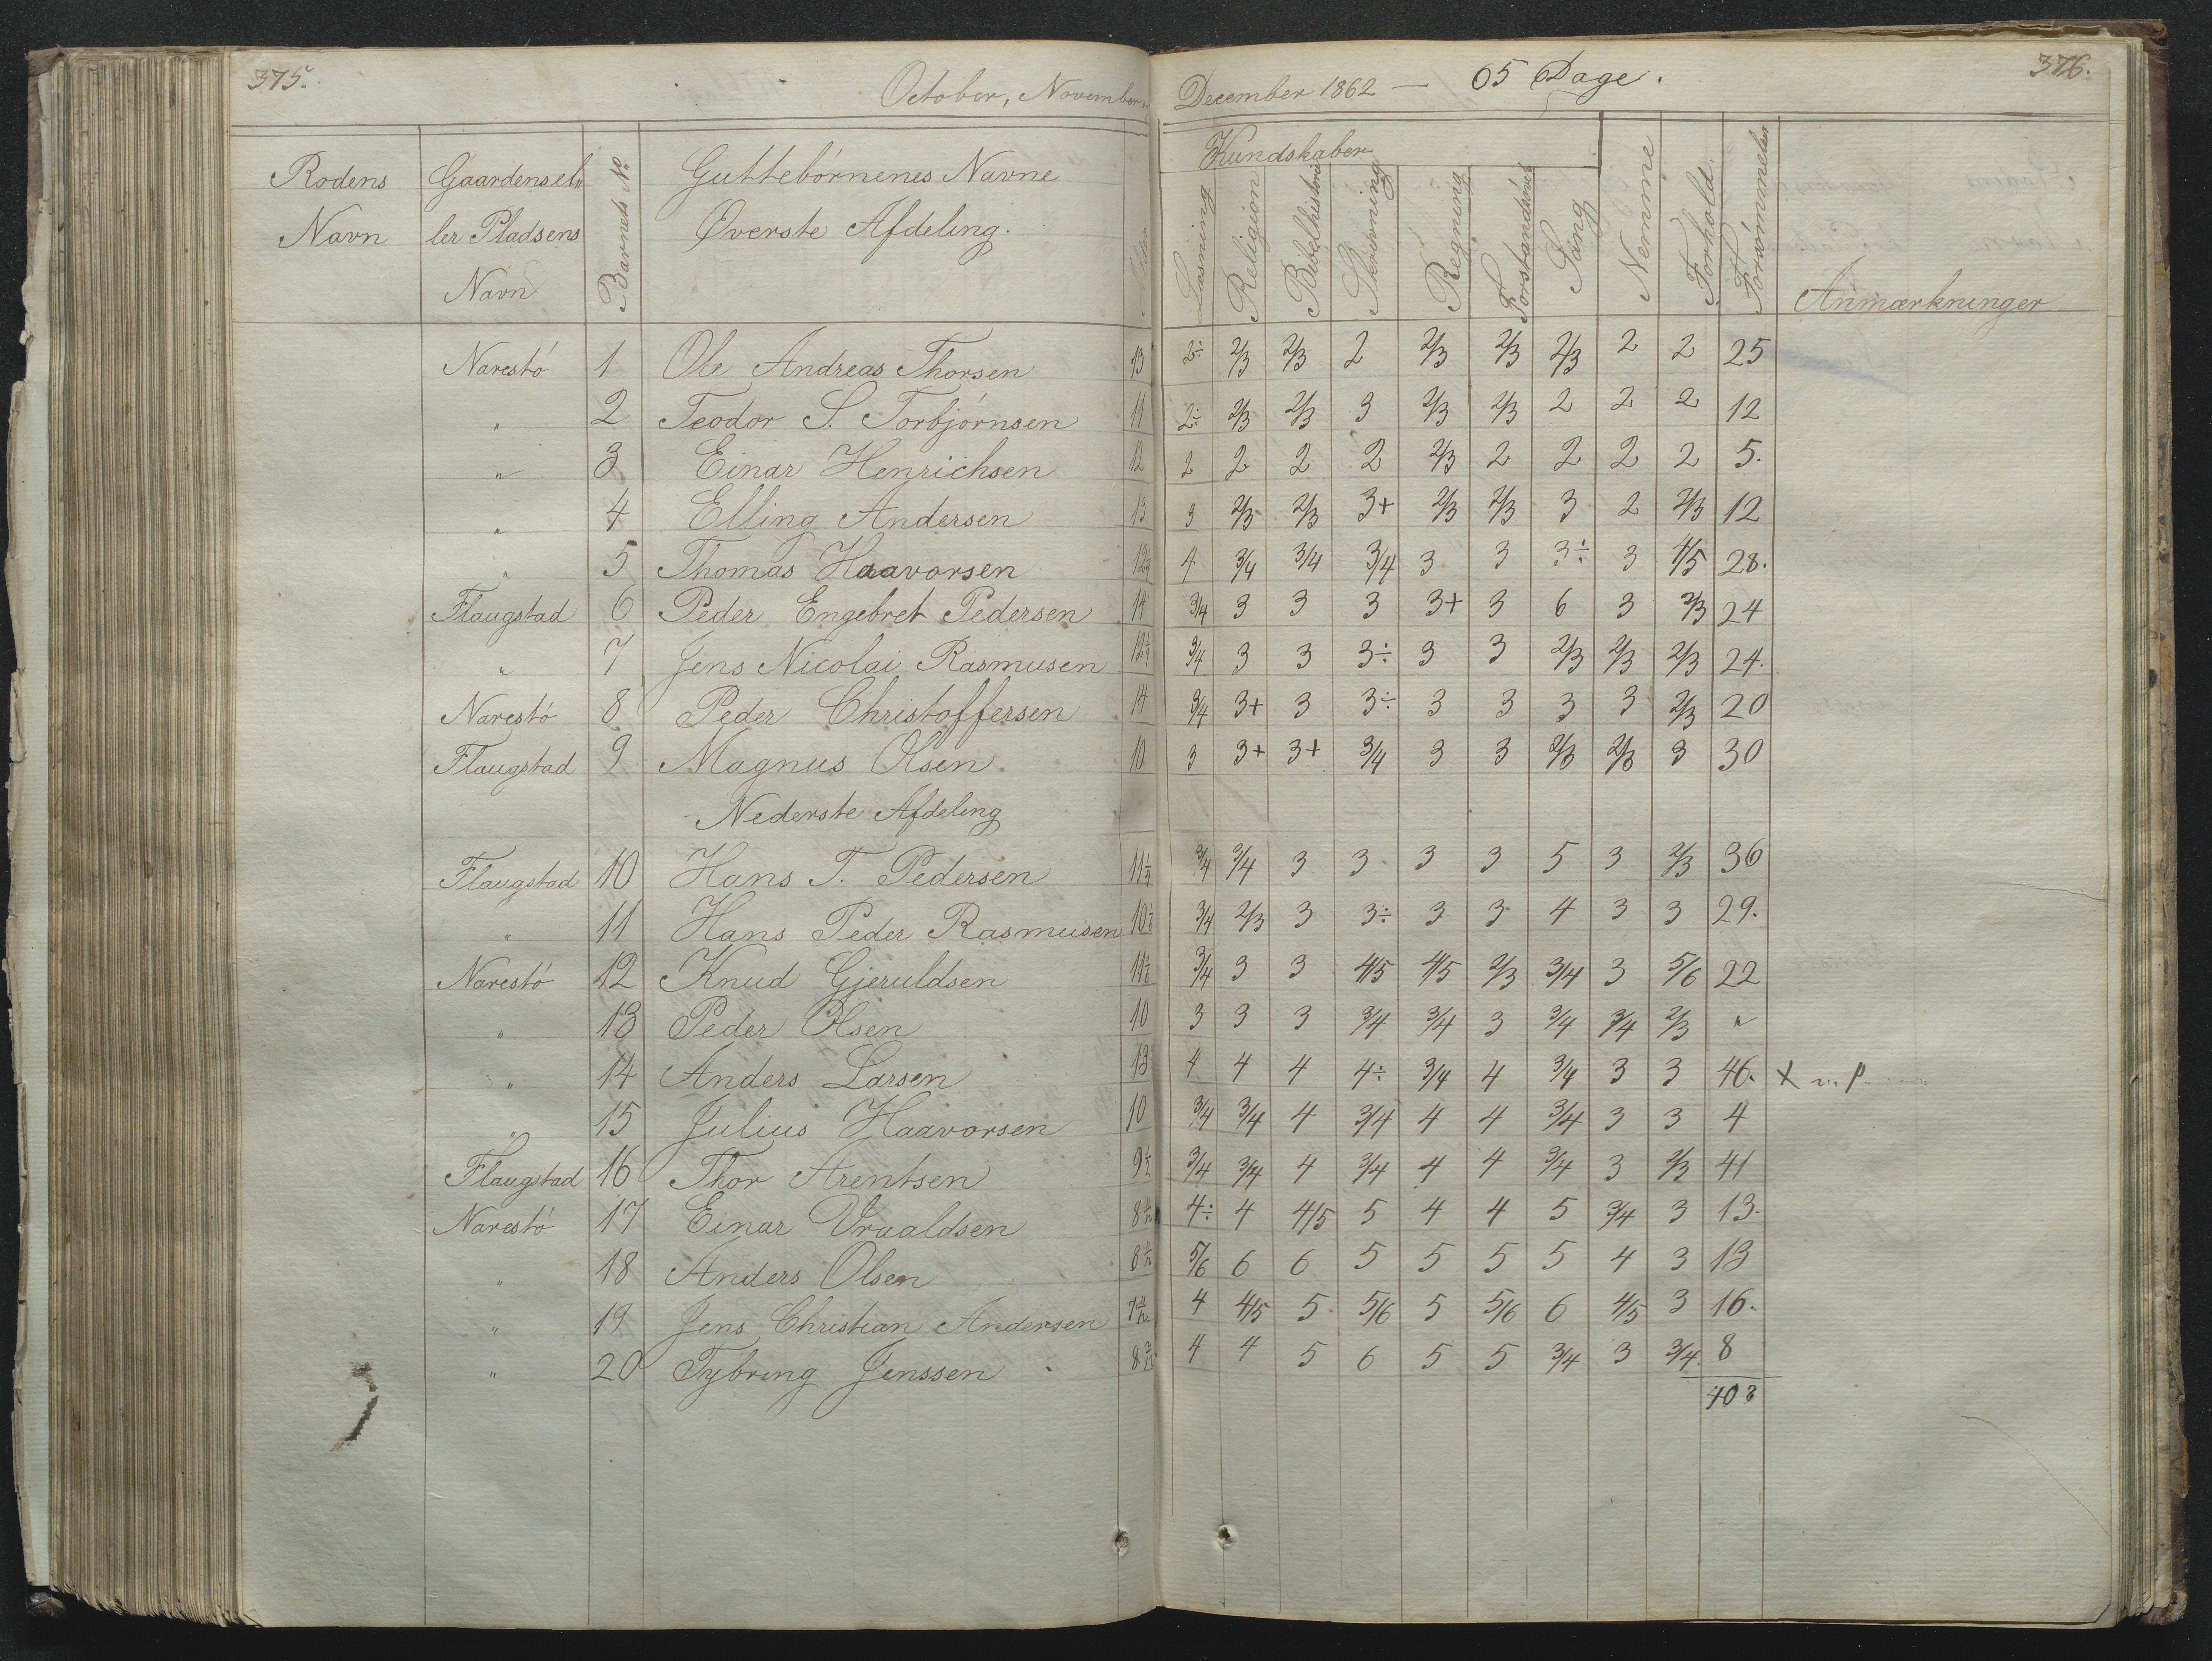 375. October, November
December 1862 — 65 Dage. 376.
Rodens Navn
Gaardens el ler Pladsens Navn
Barnets No
Guttebörnenes Navne
Øverste Afdeling.
Kundskaber
Læsning Religion Bibelhistorie Skrivning Regning Sang Nemme Forhold Forsømmelser Anmærkninger
Narestö 1 Ole Andreas Thorsen 13 2÷ 2/3 2/3 2 2/3 2/3 2/3 2 2 25
" 2 Teodor S. Torbjörnsen 11 2÷ 2/3 2/3 3 2/3 2/3 2 2 2 12
" 3 Einar Henrichsen 12 2 2 2 2 2/3 2 2 2 2 5.
" 4 Elling Andersen 13 3 2/3 2/3 3+ 2/3 2/3 3 2 2/3 12
" 5 Thomas Haavorsen 4 3/4 3/4 3/4 3 3 3÷ 3 4/5 28.
Flaugstad 6 Peder Engebret Pedersen 14 3/4 3 3 3 3+ 3 6 3 2/3 24
" 7 Jens Nicolai Rasmusen 3/4 3 3 3÷ 3 3 2/3 2/3 2/3 24.
Narestö 8 Peder Christoffersen 14 3/4 3+ 3 3÷ 3 3 3 3 2/3 20
Flaugstad 9 Magnus Olsen 10 3 3+ 3+ 3/4 3 3 2/3 2/3 3 30
Nederste Afdeling
Flaugstad 10 Hans T. Pedersen 3/4 3/4 3 3 3 3 5 3 2/3 36
" 11 Hans Peder Rasmusen 3/4 2/3 3 3÷ 3 3 4 3 3 29.
Narestö 12 Knud Gjeruldsen 3/4 3 3 4/5 4/5 2/3 3/4 3 5/6 22
" 13 Peder Olsen 10 3 3 3 3/4 3/4 3 3/4 3/4 2/3 "
" 14 Anders Larsen 13 4 4 4 4÷ 3/4 4 3/4 3 3 46. X
" 15 Julius Haavorsen 10 3/4 3/4 4 3/4 4 4 3/4 3 3 4
Flaugstad 16 Thor Arentsen 9 1/2 3/4 3/4 4 3/4 4 4 3/4 3 2/3 41
Narestö 17 Einar Vraaldsen 4÷ 4 4/5 5 4 4 5 3/4 3 13.
" 18 Anders Olsen 5/6 6 6 5 5 5 5 4 3 13
" 19 Jens Christian Andersen 4 4/5 5 5/6 5 5/6 6 4/5 3 16.
" 20 Tybring Jenssen 4 4 5 6 5 5 3/4 3 3/4 8
408